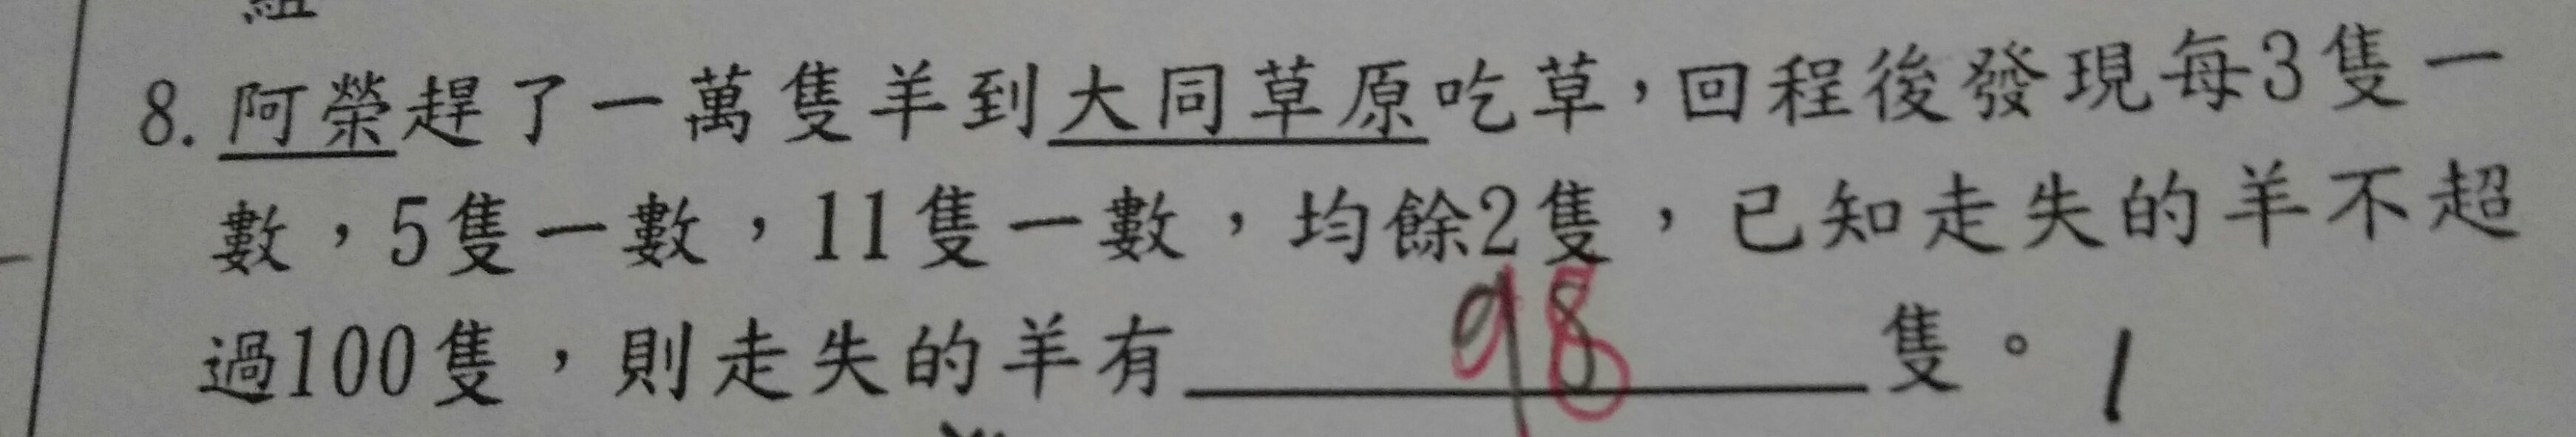 8. 阿榮趕了一萬隻羊到大同草原吃草，回程後發現每3隻一
數，5隻一數，11隻一數，均餘2隻，已知走失的羊不超
過100隻，則走失的羊有98隻。1